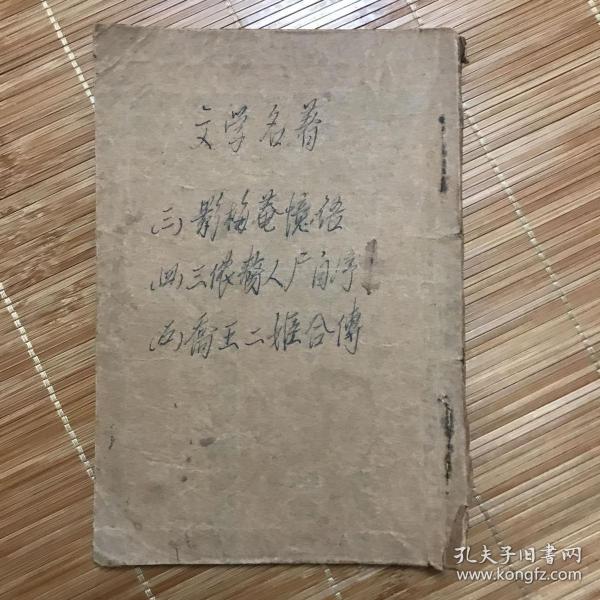 文学名著
(三)影梅菴憶語
(四)三儂赘人广自序
(五)喬王二姬合傳
孔夫子旧书网
www.kongfz.com